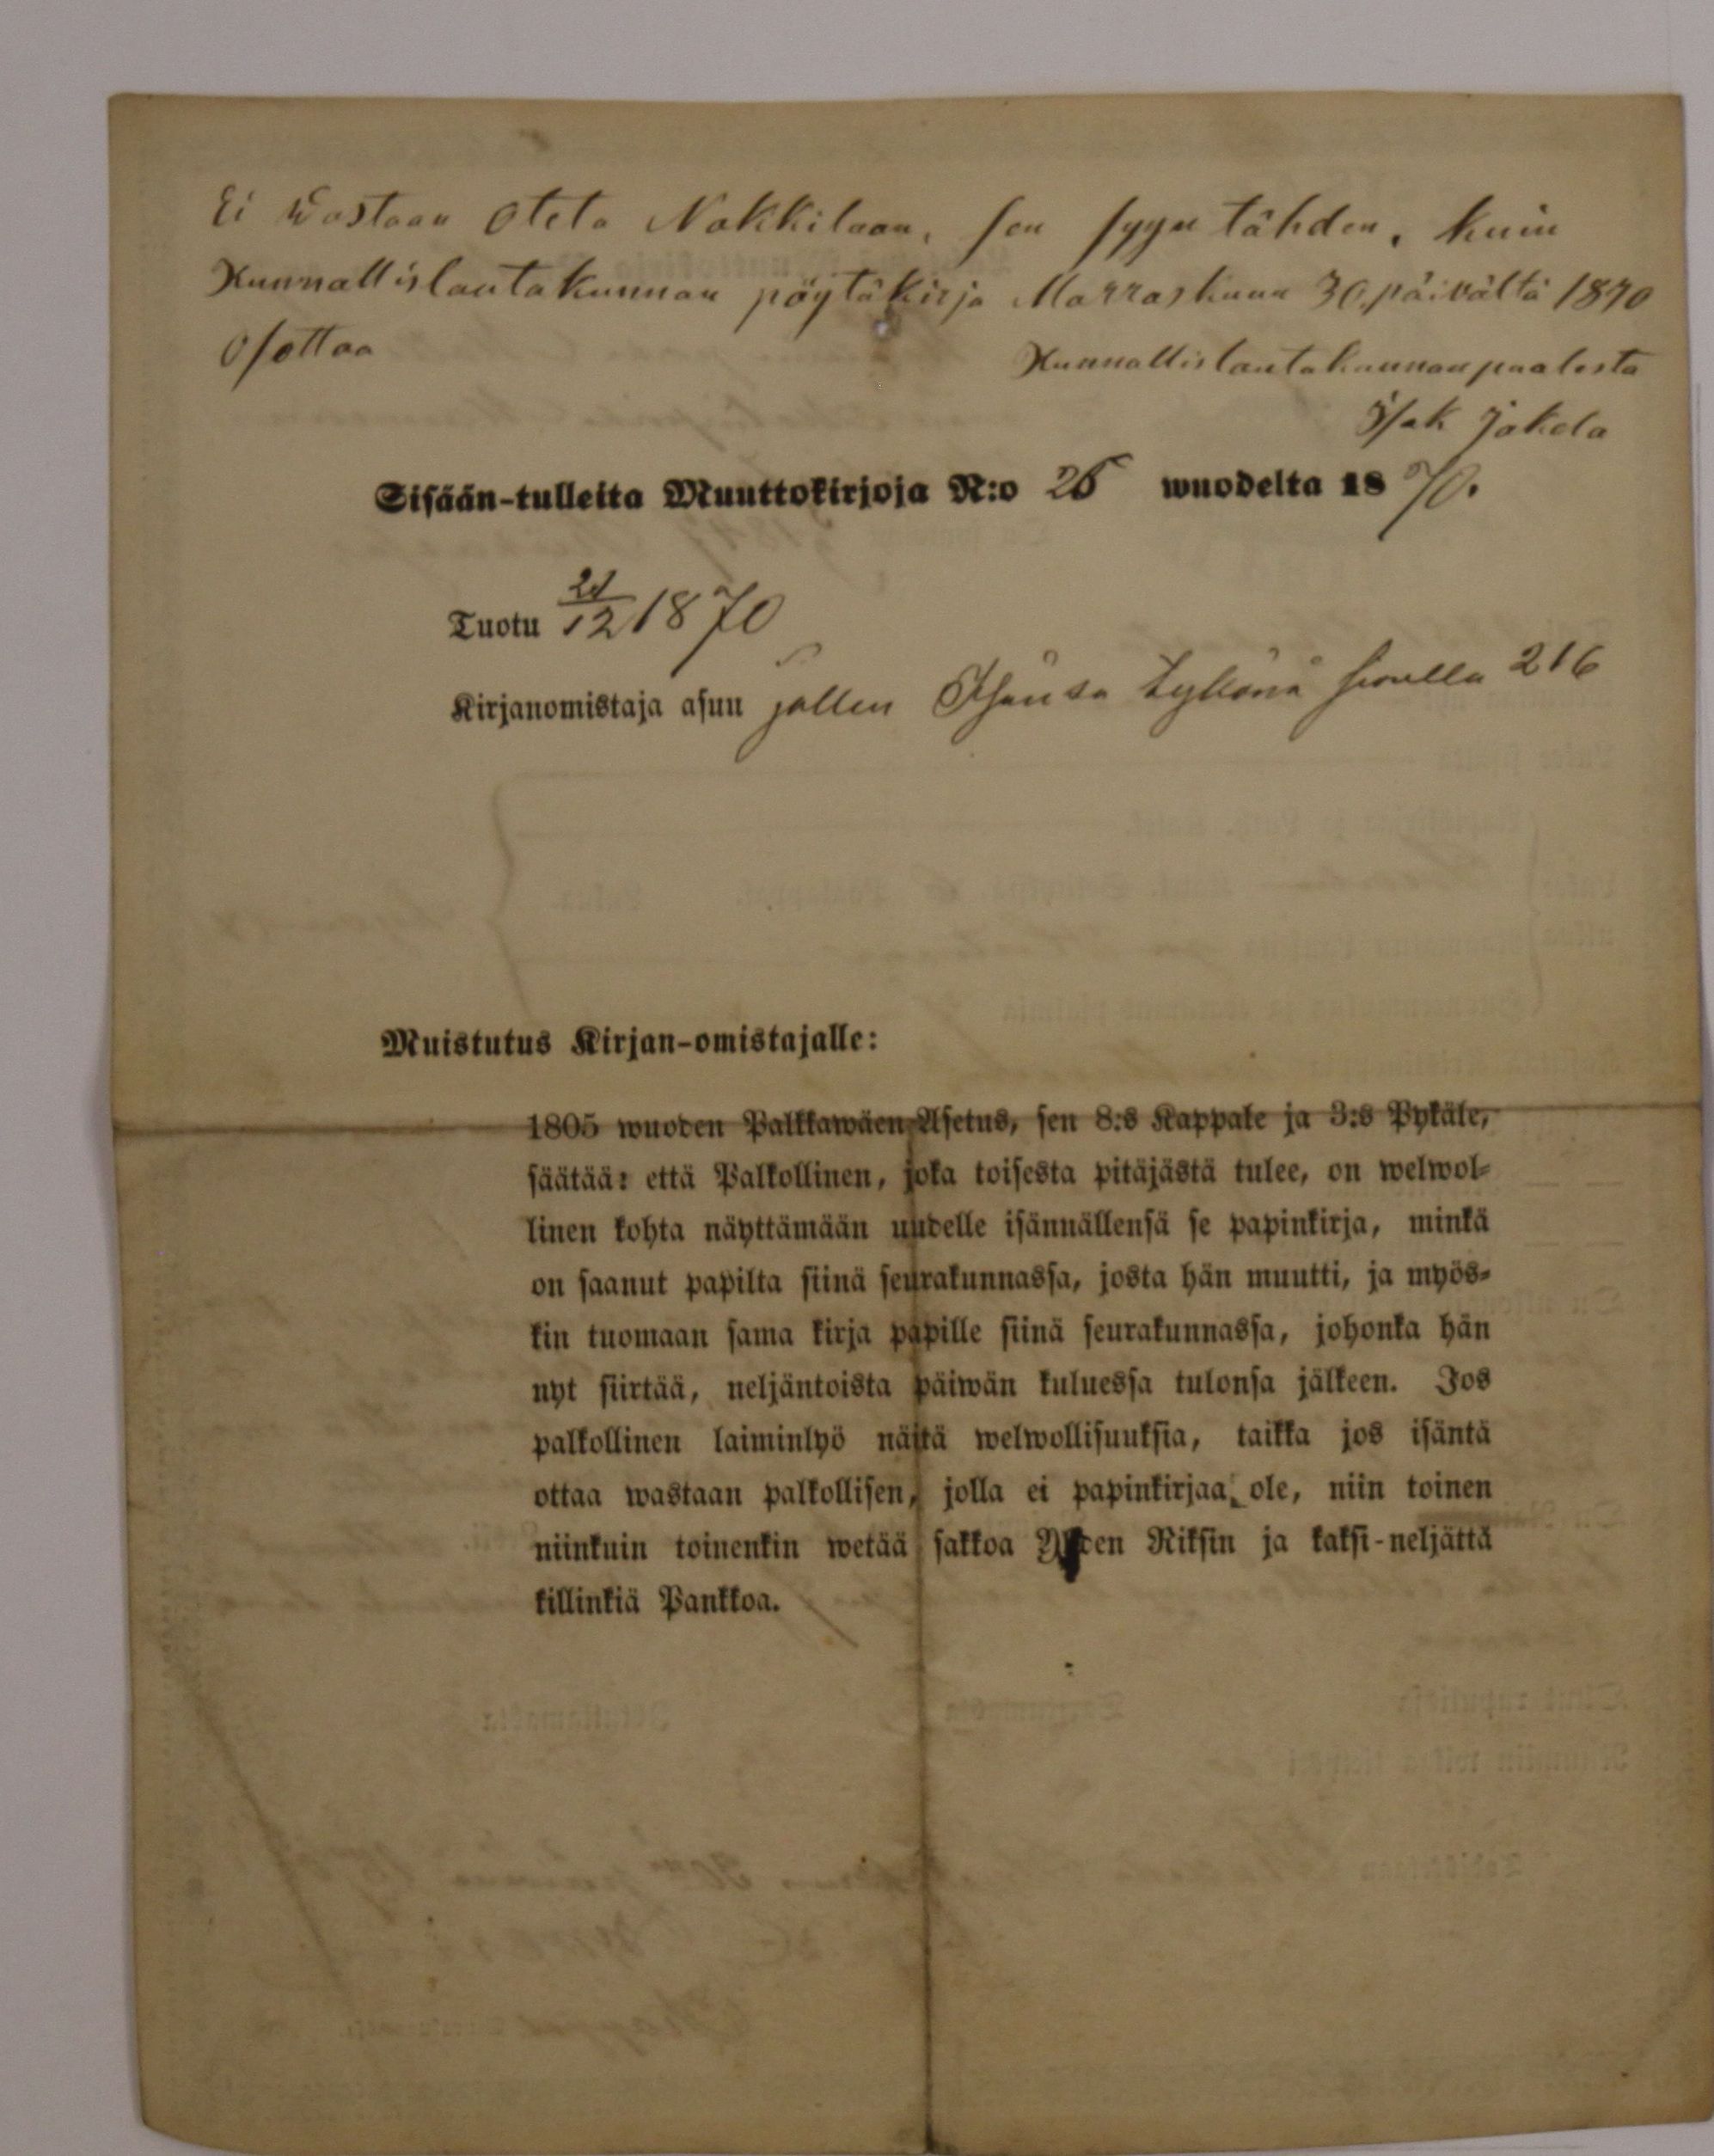 Ei Wastaan oteta Nakkilaan, sen syyn tähden, kuin
Kunnallislautakunnan pöytäkirja Marraskuun 30. päivältä 1870
osottaa
Kunnallislautakunnan puolesta
Isak Jakola
Sisään-tulleita Muuttokirjoja N:o 26 wuodelta 1870.
Tuotu 21/12 1870
Kirjanomistaja asuu jällen sivulla 216
Muistutus Kirjan-omistajalle:
1805 wuoden Palkkawäen-Asetus, sen 8:s Kappale ja 3:s Pykäle,
säätää: että Palkollinen, joka toisesta pitäjästä tulee, on welwol-
linen kohta näyttämään uudelle isännällensä se papinkirja, minkä
on saanut papilta siinä seurakunnassa, josta hän muutti, ja myös-
kin tuomaan sama kirja papille siinä seurakunnassa, johonka hän
nyt siirtää, neljäntoista päiwän kuluessa tulonsa jälkeen. Jos
palkollinen laiminlyö näitä welwollisuuksia, taikka jos isäntä
ottaa wastaan palkollisen, jolla ei papinkirjaa ole, niin toinen
niinkuin toinenkin wetää sakkoa Yhden Riksin ja kaksi-neljättä
killinkiä Pankkoa.